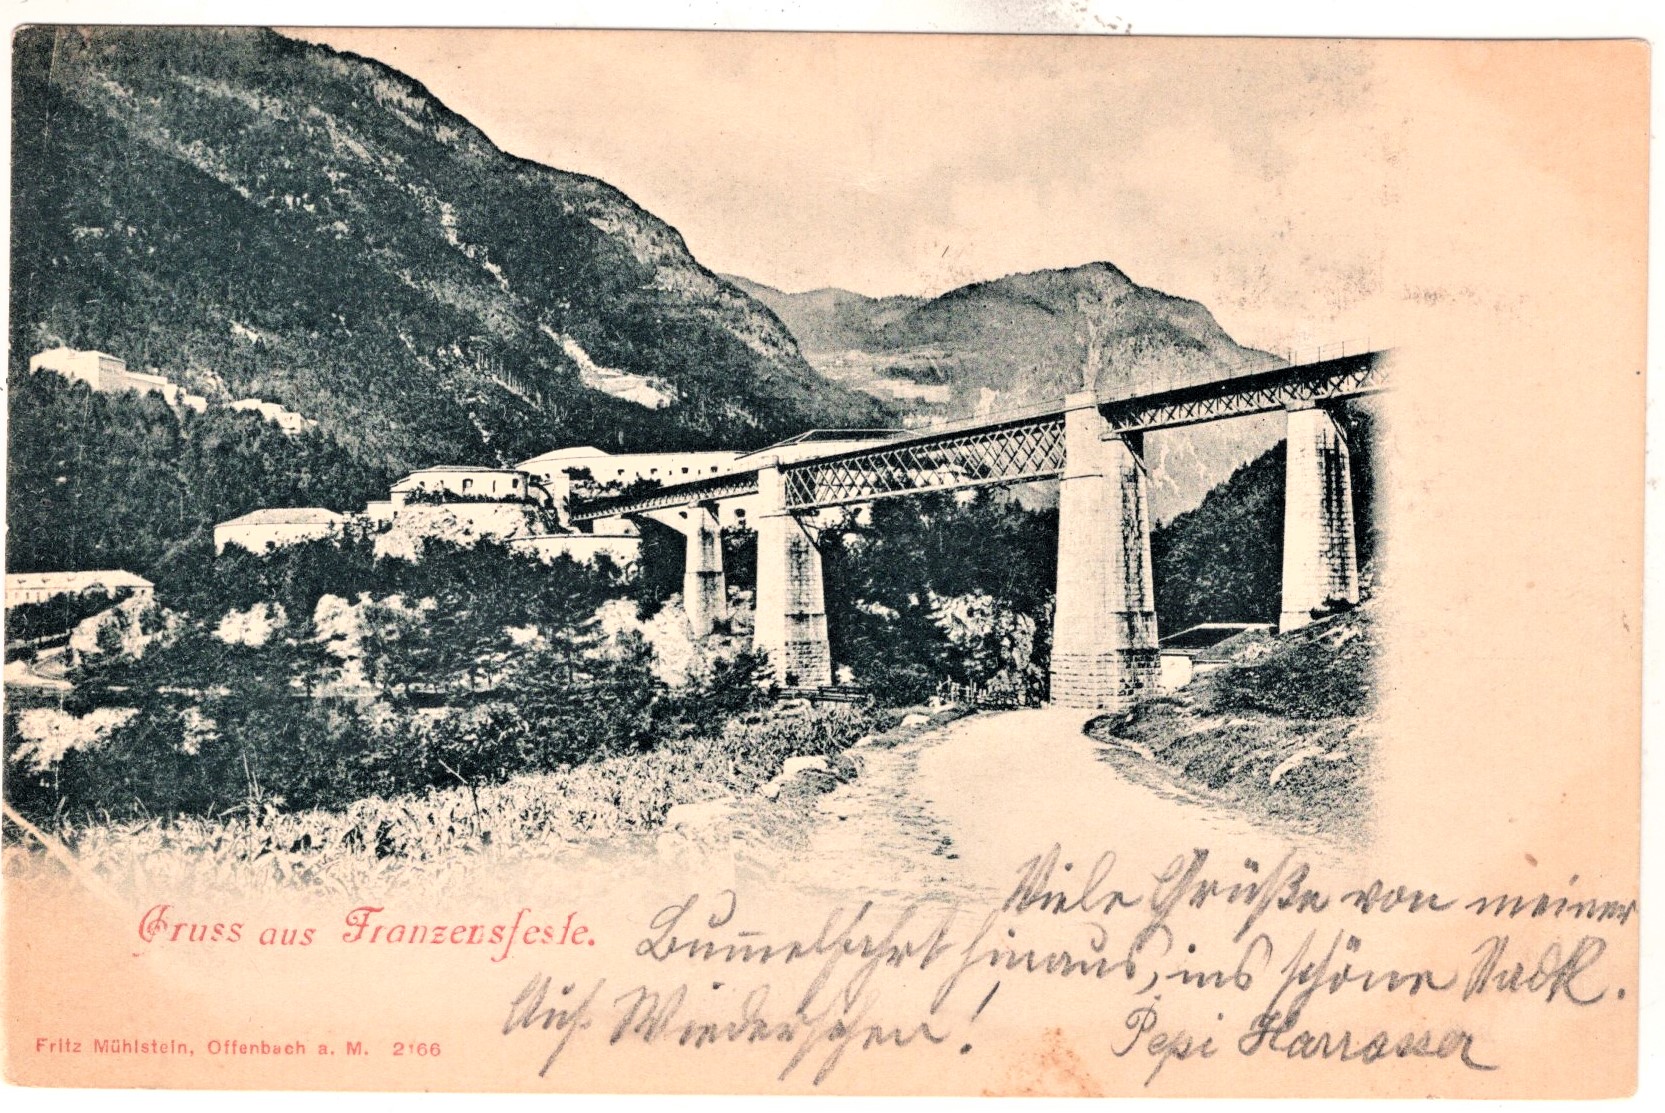 Gruss aus Franzensfeste.
Viele Grüße von meiner
Bum̅elfahrt hinaus, ins schöne
Auf Wiedersehen! Pepi Harrasser
Fritz Mühlstein, Offenbach a. M. 2166